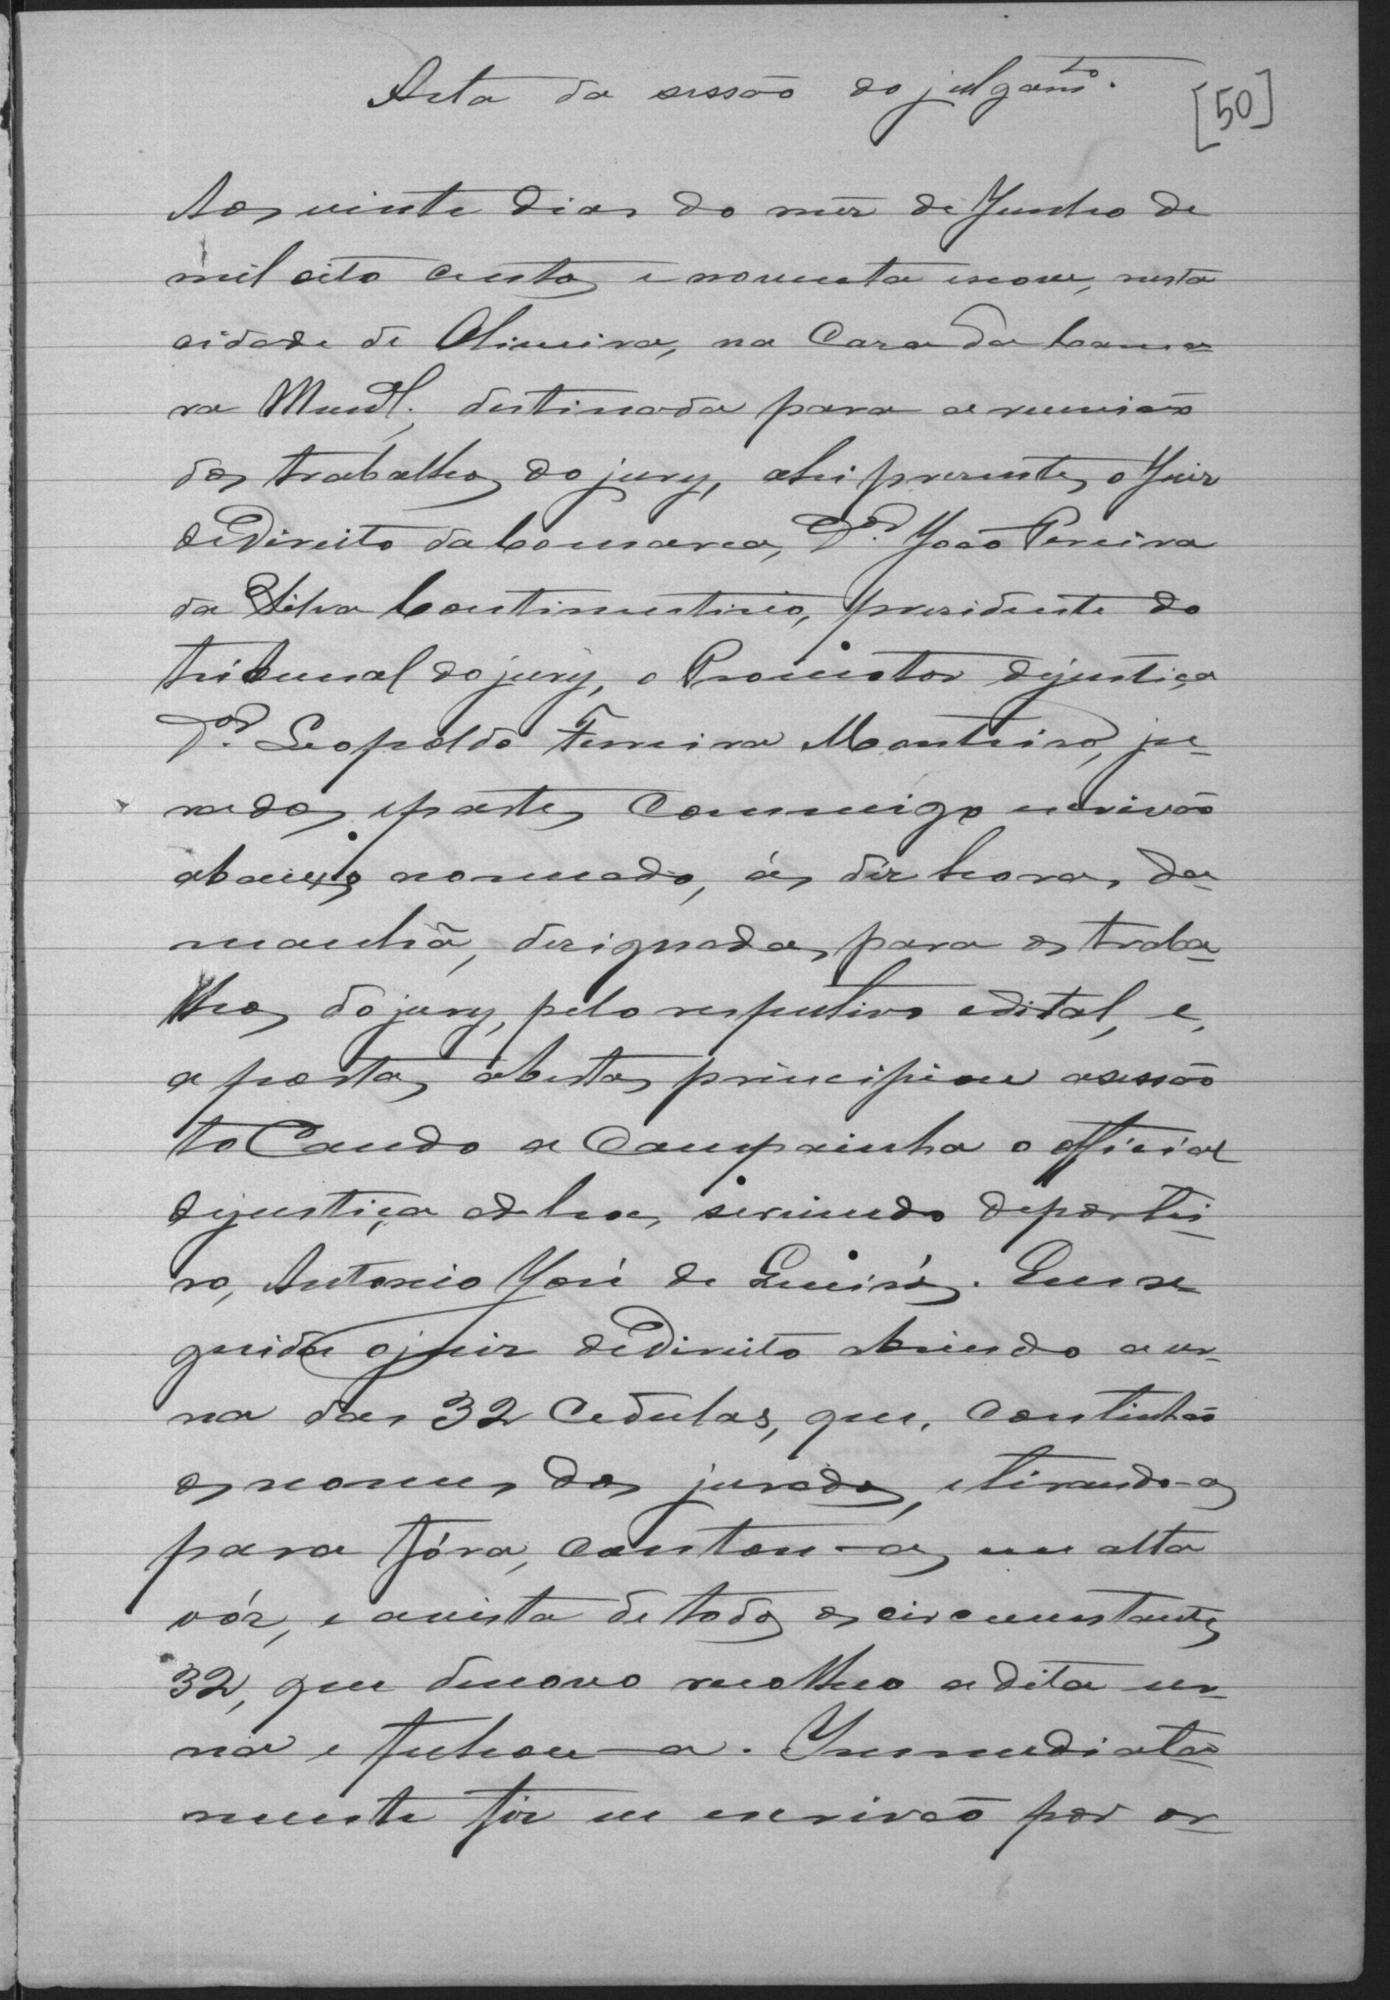 Acta da sessão do julgam.to
[50]
Aos vinte dias do mez de Junho de
mil oito centos e noventa e nove, nesta
cidade de Oliveira, na Casa da Cama-
ra Mun.al, destinada para a reunião
dos trabalhos do jury, ahi presentes o Juiz
de Direito da Comarca, D.or João Pereira
da Silva Continentino, presidente do
tribunal do jury, o Promotor de justiça
D.or Leopoldo Ferreira Monteiro, ju-
rados e partes commigo escrivão
abaixo nomeado, ás dez horas da
manhã, designadas para os traba-
lhos do jury, pelo respectivo edital, e,
a portas abertas principiou a sessão
tocando a campainha o official
de justiça ad hoc, servindo de portei-
ro, Antonio José de . Em se-
guida o juiz de Direito abrindo a ur-
na das 32 cedulas, que, continhão
os nomes dos jurados, e tirando-as
para fóra, contou-as em alta
vóz, e a vista de todos os circumstantes
32, que de novo recolheo a dita ur-
na e fechou-a. Immediata-
mente fez eu escrivão por or-